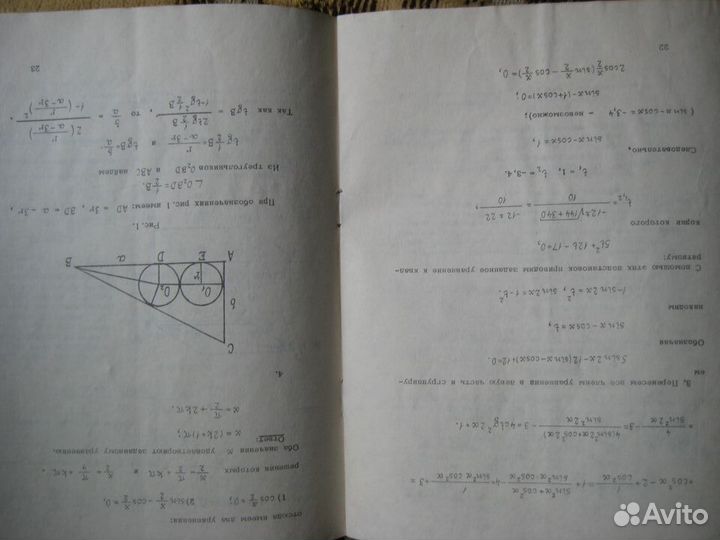 + cos²α − 2 + 1/cos²α = 1 + (sin²α + cos²α)/(sin²α · cos²α) − 4 = 1/(sin²α cos²α) − 3 =
= 4/sin²2α − 3 = 4(sin²2α + cos²2α)/sin²2α − 3 = 4ctg²2α + 1.
3. Перенесем все члены уравнения в левую часть и сгруппиру-
ем
5 sin2x − 12(sinx − cosx) + 12 = 0.
Обозначая
sinx − cosx = t,
находим
1 − sin2x = t², sin2x = 1 − t².
С помощью этих подстановок приводим заданное уравнение к квад-
ратному:
5t² + 12t − 17 = 0,
корни которого
t₁,₂ = (−12 ± √(144 + 340))/10 = (−12 ± 22)/10,
t₁ = 1, t₂ = −3,4.
Следовательно,
sinx − cosx = 1,
(sinx − cosx = −3,4 − невозможно);
sinx − (1 + cosx) = 0;
2cos x/2 (sin x/2 − cos x/2) = 0,
22
отсюда имеем два уравнения:
1) cos x/2 = 0; 2) sin x/2 − cos x/2 = 0,
решения которых x/2 = π/2 + kπ и x/2 = π/4 + kπ.
Оба значения x удовлетворяют заданному уравнению.
Ответ: x = (2k + 1)π;
x = π/2 + 2kπ.
4.
C
b
O₁
O₂
r
A
E
D
a
B
Рис. 1.
При обозначениях рис. 1 имеем: AD = 3r, BD = a − 3r,
∠O₂BD = 1/2 B.
Из треугольников O₂BD и ABC найдем
tg 1/2 B = r/(a − 3r) и tgB = b/a.
Так как tgB = 2tg 1/2 B/(1 − tg² 1/2 B), то b/a = 2(r/(a − 3r))/(1 − (r/(a − 3r))²),
23
Avito